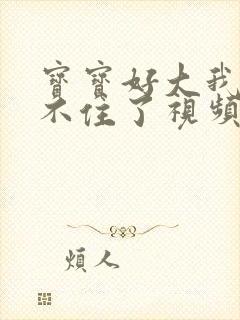 寶寶好大我
不住了視頻
煩人